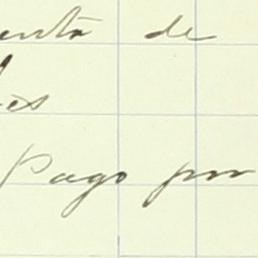 enta de
es
Pago por